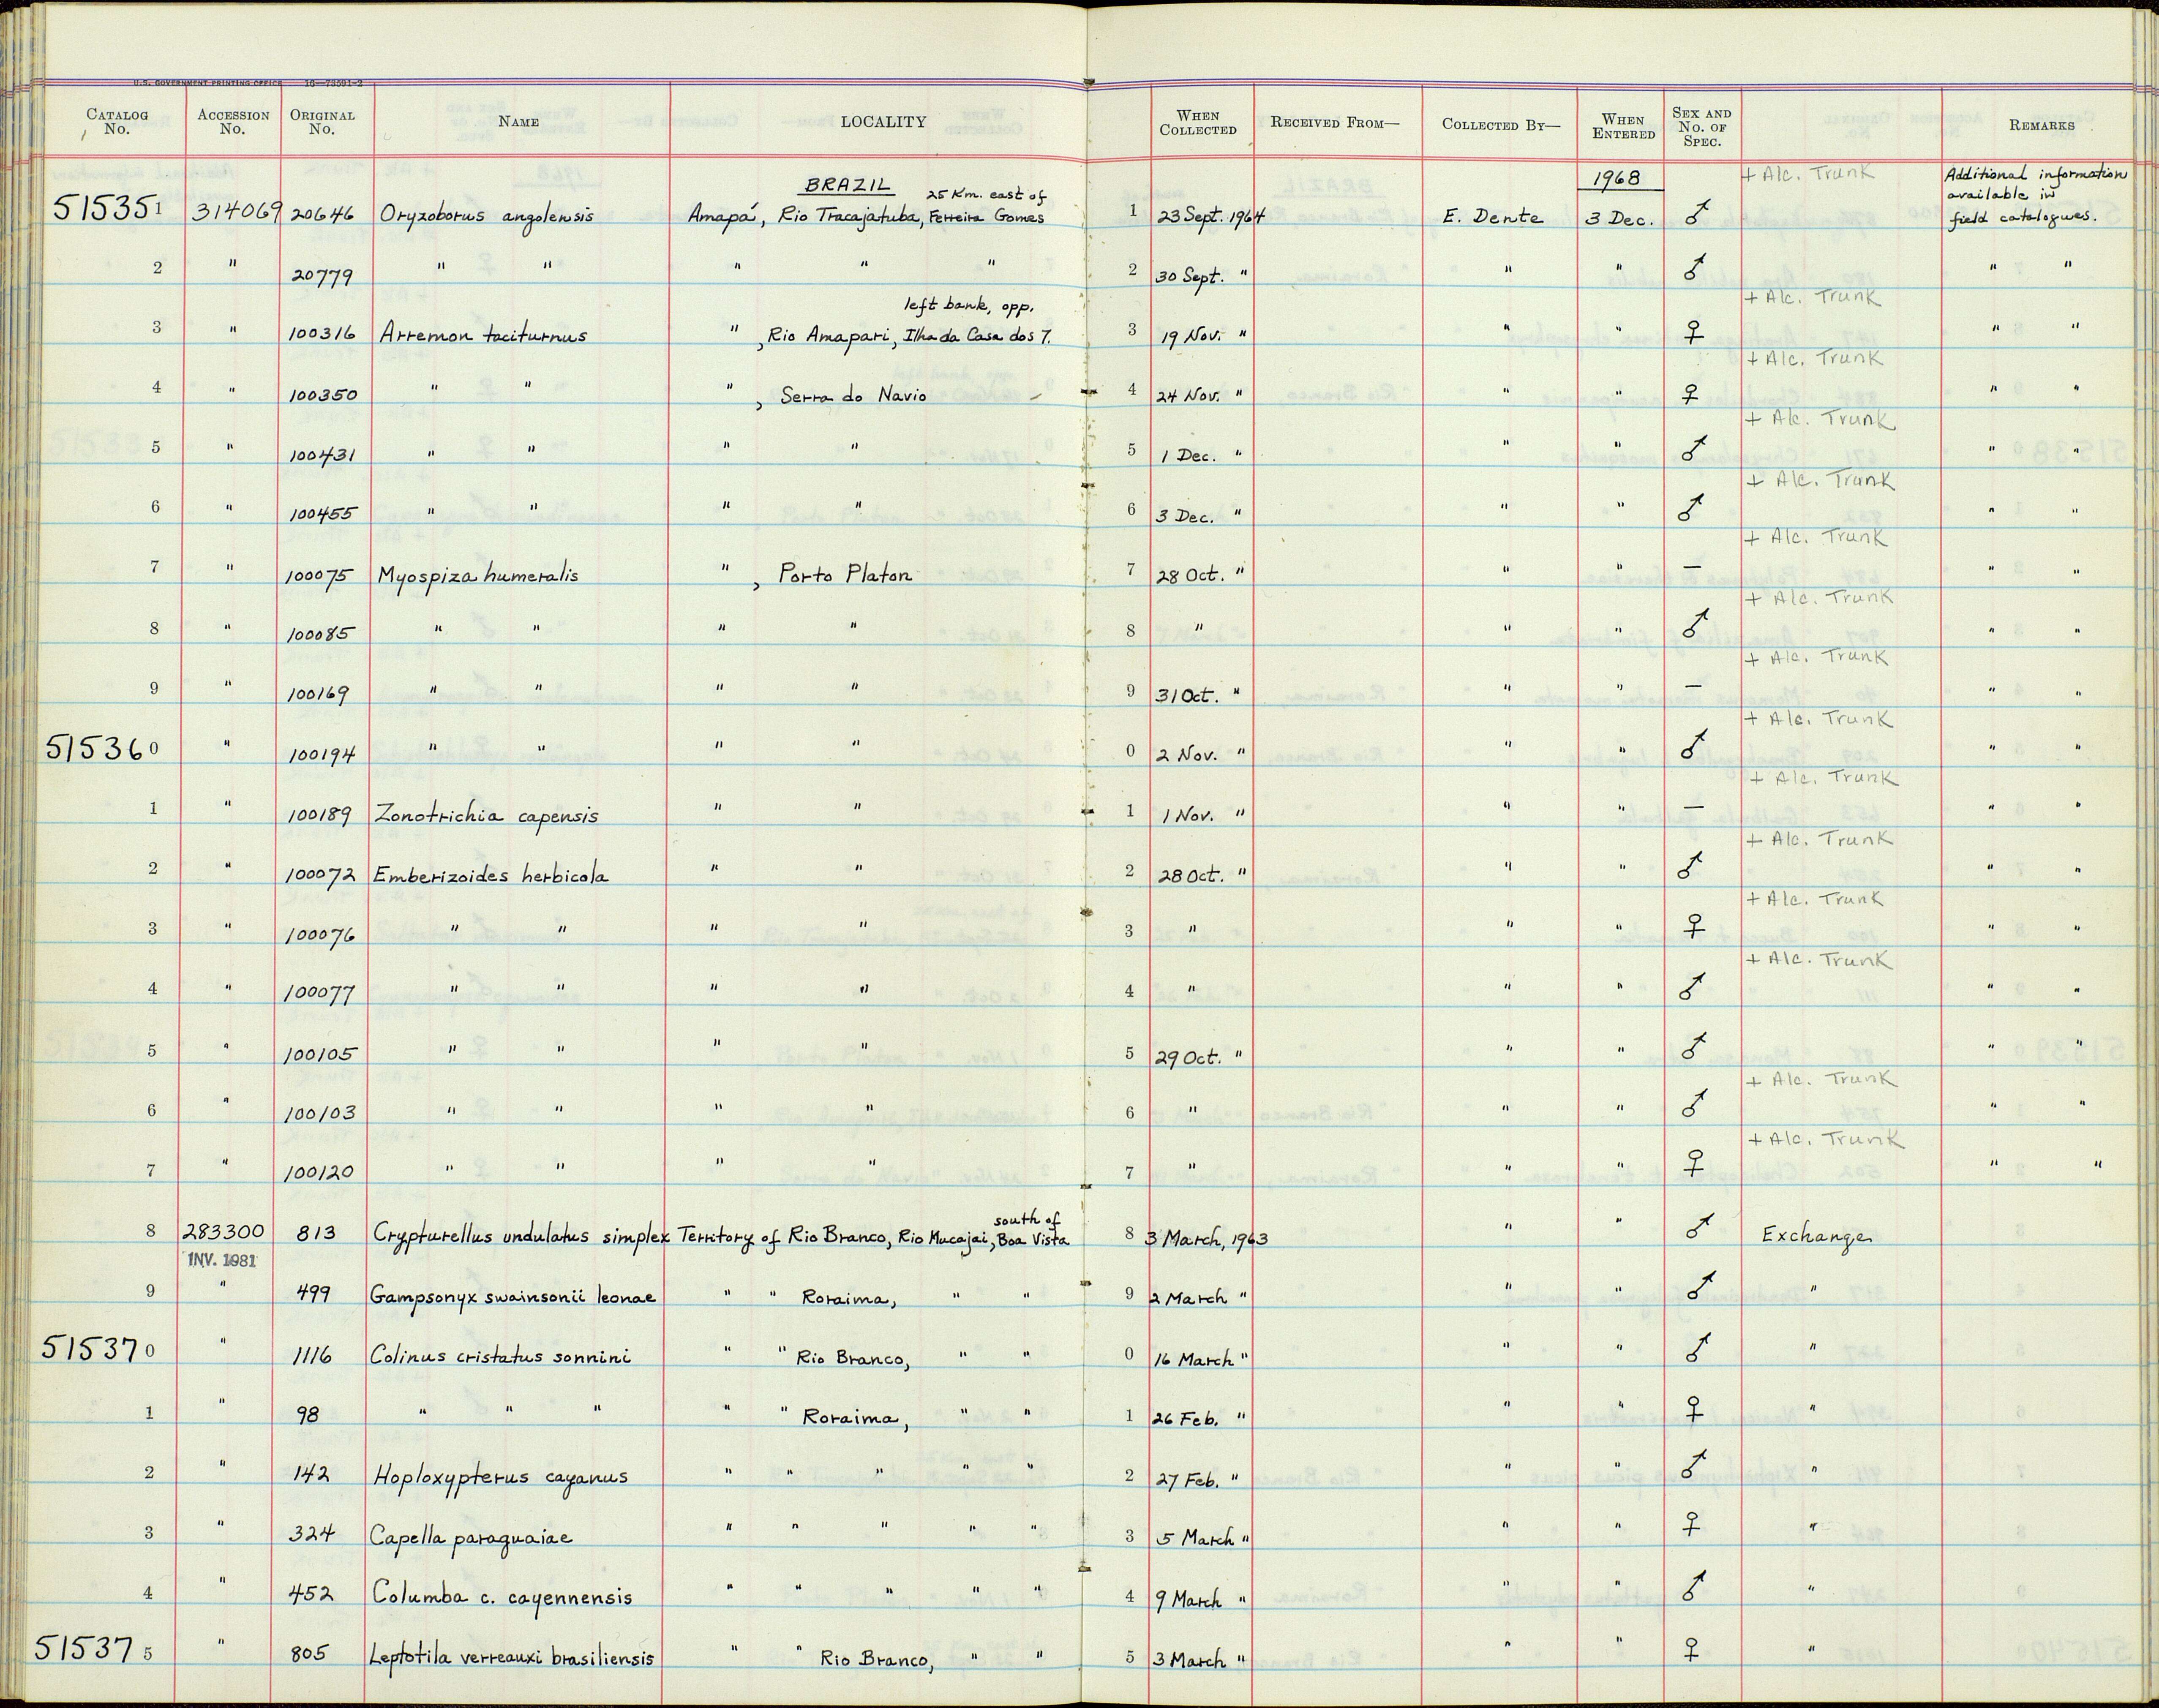 U.S. GOVERNMENT PRINTING OFFICE 16—73591-2
CATALOG No. ACCESSION No. ORIGINAL No. NAME LOCALITY WHEN COLLECTED RECEIVED FROM— COLLECTED BY— WHEN ENTERED SEX AND No. OF SPEC. REMARKS
BRAZIL 1968 + Alc. Trunk Additional information
25 Km. east of available in
515351 314069 20646 Oryzoborus angolensis Amapá, Rio Tracajatuba, Ferreira Gomes 1 23 Sept. 1964 E. Dente 3 Dec. ♂ field catalogues.
2 " 20779 " " " " " 2 30 Sept. " " " ♂ " "
left bank, opp. + Alc. Trunk
3 " 100316 Arremon taciturnus " , Rio Amapari, Ilha da Casa dos 7. 3 19 Nov. " " " ♀ " "
+ Alc. Trunk
4 " 100350 " " " , Serra do Navio 4 24 Nov. " " " ♀ " "
+ Alc. Trunk
5 " 100431 " " " " 5 1 Dec. " " " ♂ " "
+ Alc. Trunk
6 " 100455 " " " " 6 3 Dec. " " " ♂ " "
+ Alc. Trunk
7 " 100075 Myospiza humeralis " , Porto Platon 7 28 Oct. " " " — " "
+ Alc. Trunk
8 " 100085 " " " " 8 " " " ♂ " "
+ Alc. Trunk
9 " 100169 " " " " 9 31 Oct. " " " — " "
+ Alc. Trunk
515360 " 100194 " " " " 0 2 Nov. " " " ♂ " "
+ Alc. Trunk
1 " 100189 Zonotrichia capensis " " 1 1 Nov. " " " — " "
+ Alc. Trunk
2 " 100072 Emberizoides herbicola " " 2 28 Oct. " " " ♂ " "
+ Alc. Trunk
3 " 100076 " " " " 3 " " " ♀ " "
+ Alc. Trunk
4 " 100077 " " " " 4 " " " ♂ " "
5 " 100105 " " " " 5 29 Oct. " " " ♂ " "
+ Alc. Trunk
6 " 100103 " " " " 6 " " " ♂ " "
+ Alc. Trunk
7 " 100120 " " " " 7 " " " ♀ " "
south of
8 283300 813 Crypturellus undulatus simplex Territory of Rio Branco, Rio Mucajai, Boa Vista 8 3 March, 1963 " " ♂ Exchange
INV. 1981
9 " 499 Gampsonyx swainsonii leonae " " Roraima, " " 9 2 March " " " ♂ "
515370 " 1116 Colinus cristatus sonnini " " Rio Branco, " " 0 16 March " " " ♂ "
1 " 98 " " " " " Roraima, " " 1 26 Feb. " " " ♀ "
2 " 142 Hoploxypterus cayanus " " " " " 2 27 Feb. " " " ♂ "
3 " 324 Capella paraguaiae " " " " " 3 5 March " " " ♀ "
4 " 452 Columba c. cayennensis " " " " " 4 9 March " " " ♂ "
515375 " 805 Leptotila verreauxi brasiliensis " " Rio Branco, " " 5 3 March " " " ♀ "